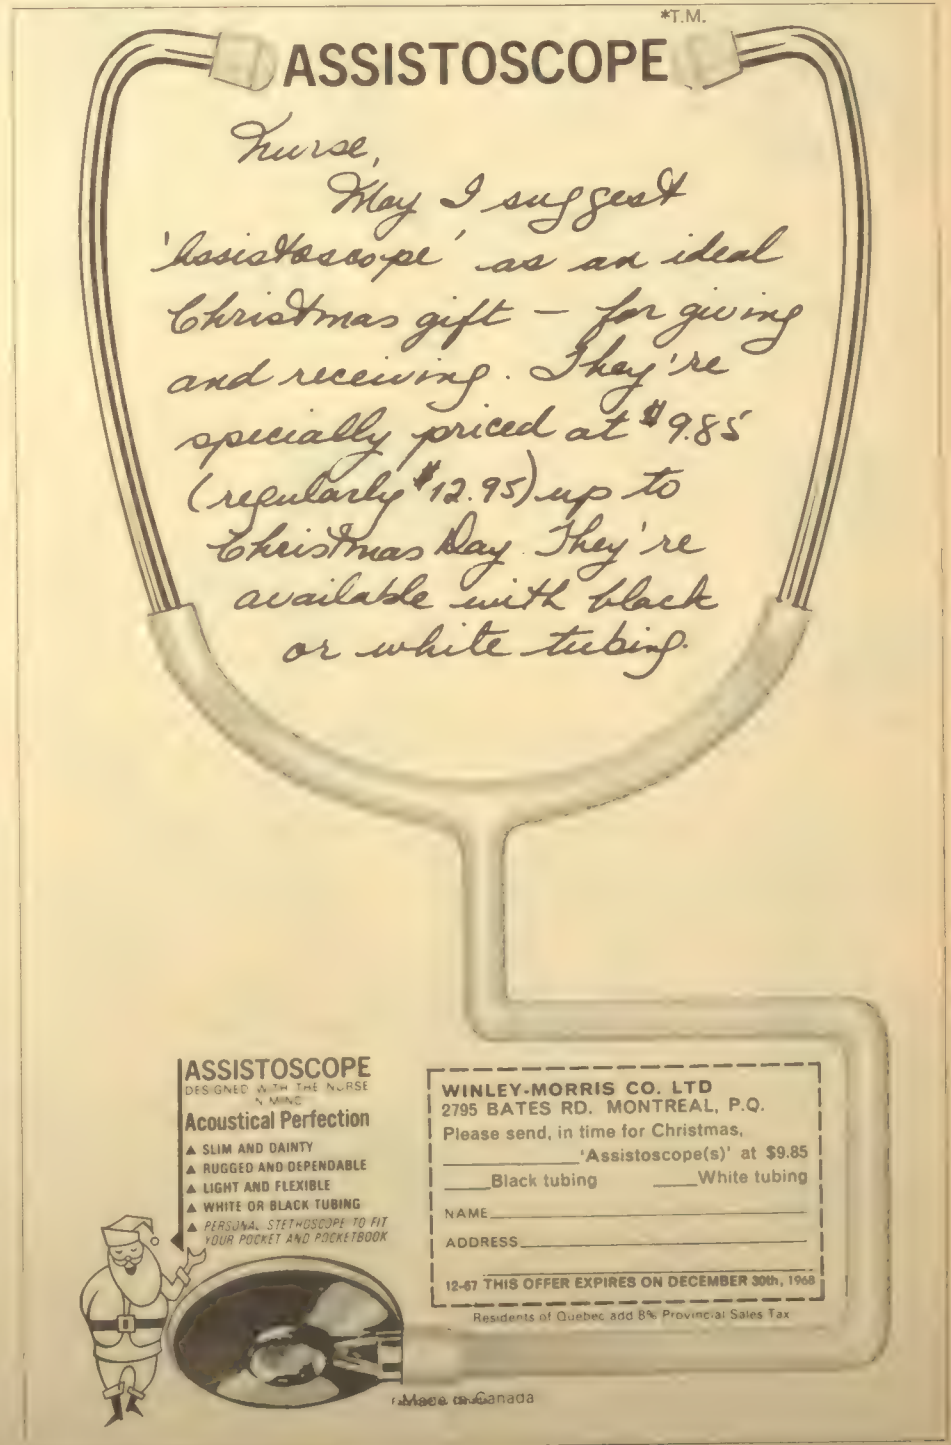 *T.M.
ASSISTOSCOPE
Nurse,
May I suggest
'Assistoscope' as an ideal
Christmas gift — for giving
and receiving. They're
specially priced at $9.85
(regularly $12.95) up to
Christmas Day. They're
available with black
or white tubing.
ASSISTOSCOPE
DESIGNED WITH THE NURSE
IN MIND
Acoustical Perfection
▲ SLIM AND DAINTY
▲ RUGGED AND DEPENDABLE
▲ LIGHT AND FLEXIBLE
▲ WHITE OR BLACK TUBING
▲ PERSONAL STETHOSCOPE TO FIT
YOUR POCKET AND POCKETBOOK
WINLEY-MORRIS CO. LTD
2795 BATES RD. MONTREAL, P.Q.
Please send, in time for Christmas,
'Assistoscope(s)' at $9.85
Black tubing White tubing
NAME
ADDRESS
12-67 THIS OFFER EXPIRES ON DECEMBER 30th, 1968
Residents of Quebec add 8% Provincial Sales Tax
Made in Canada